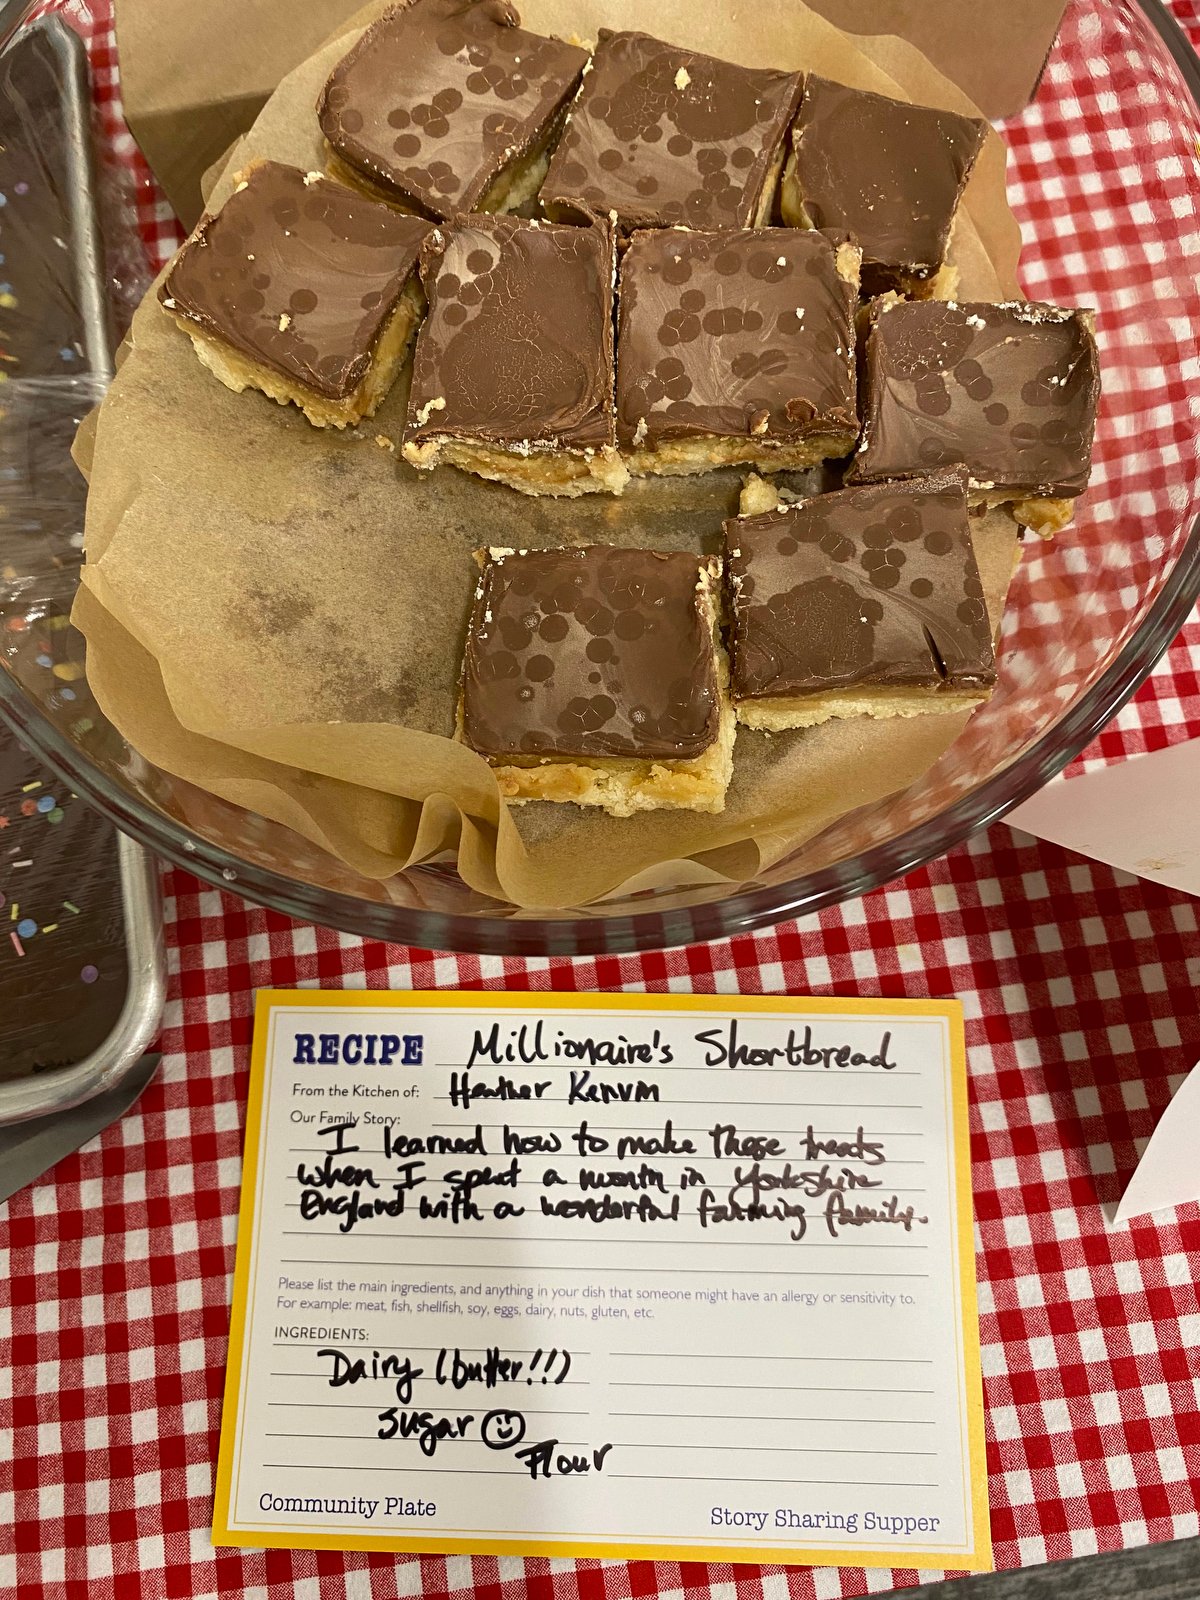 RECIPE Millionaire's Shortbread
From the Kitchen of: Heather Kenvin
Our Family Story:
I learned how to make these treats
when I spent a month in Yorkshire
England with a wonderful farming family.
Please list the main ingredients, and anything in your dish that someone might have an allergy or sensitivity to.
For example: meat, fish, shellfish, soy, eggs, dairy, nuts, gluten, etc.
INGREDIENTS:
Dairy (butter!!)
sugar
Flour
Community Plate
Story Sharing Supper